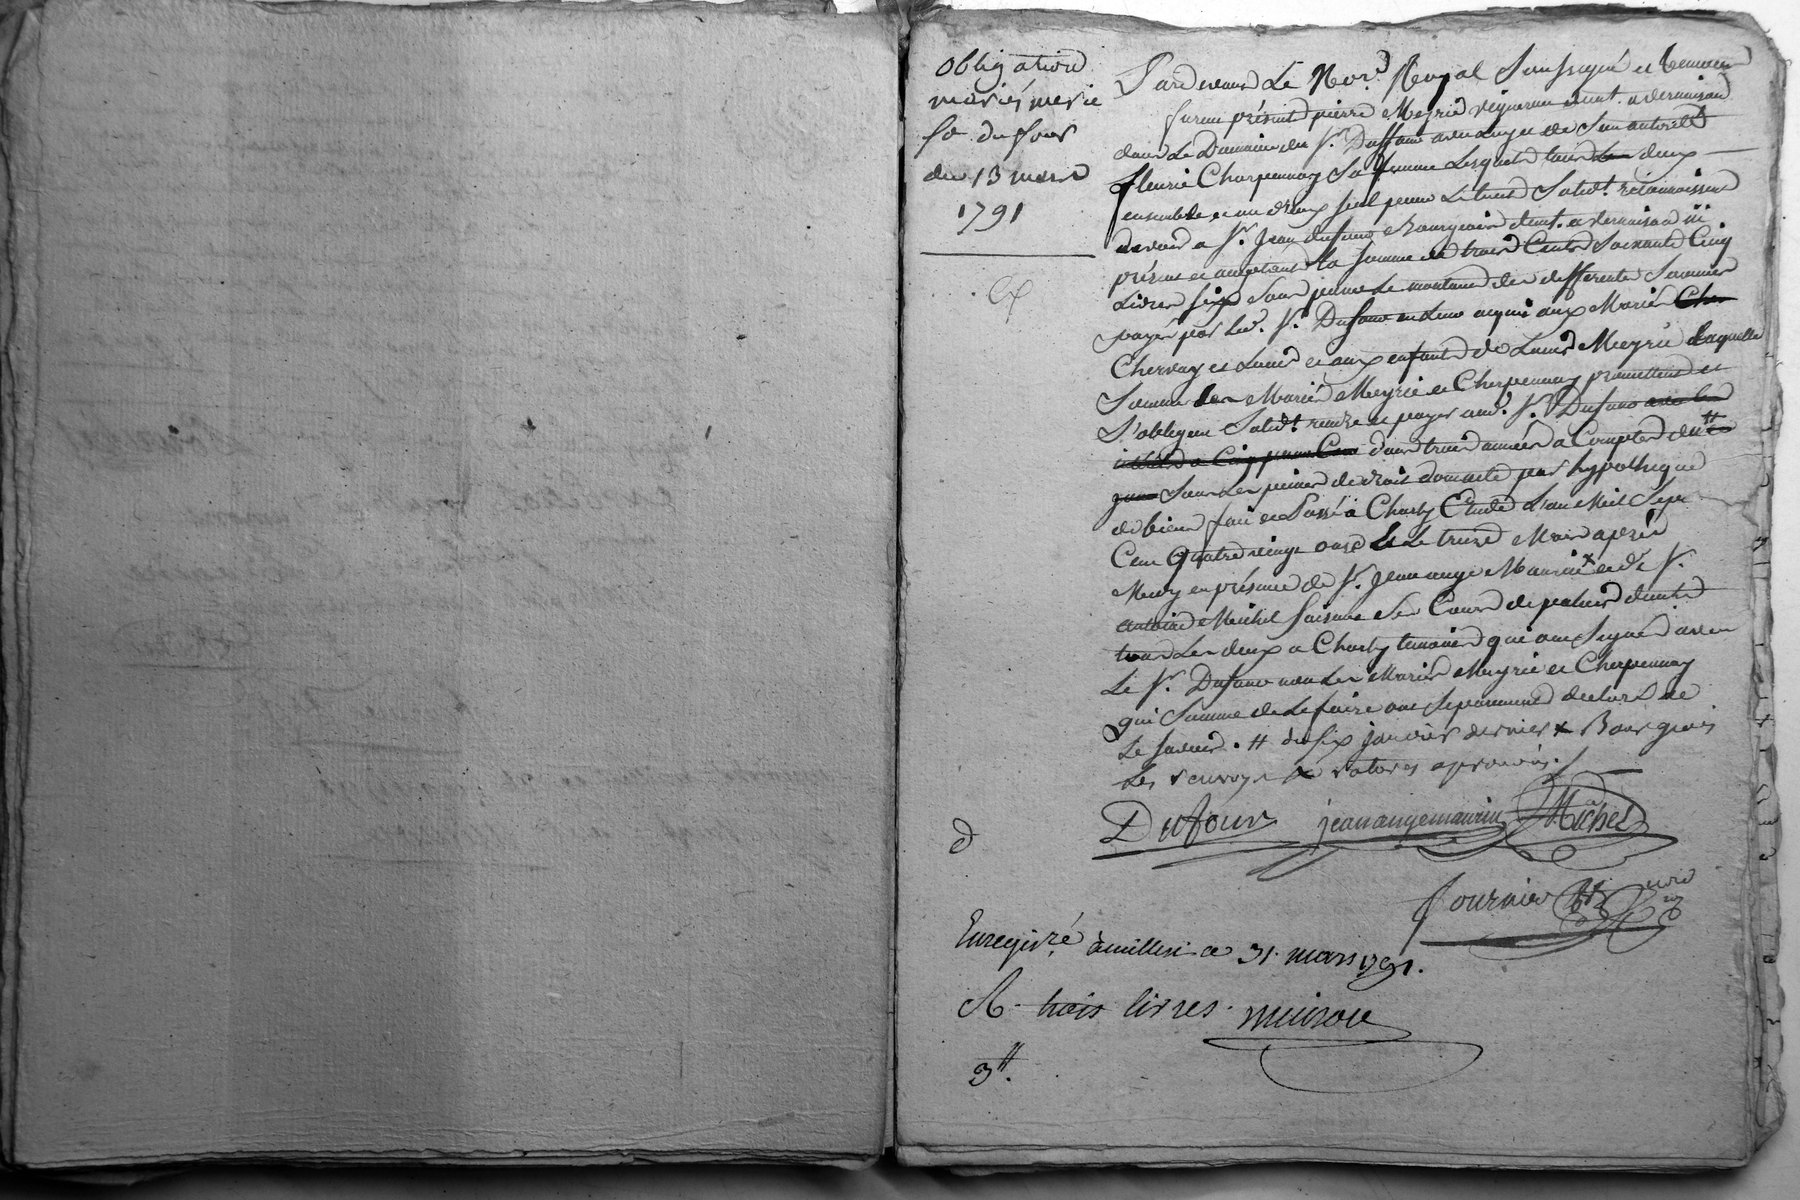 obligation
mariés merie
Sr dufour
du 13 mars
1791
Pardevant Le Nore. Royal Soussigné et temoins
furent présents pierre Meyrié vigneron demt. a vernaison
dans Le Domaine du Sr. Duffour avec Luy et de Son autorité
fleurie Charpennay Sa femme Lesquels tous Les deux
ensemble et un d'eux seul pour Le tout Solidt. reconnoissent
devoir a Sr. Jean dufour Bourgeois demt. a vernaison ici
présent et acceptant La Somme de trois Cents Soixante Cinq
Livres six Sous pour Le montant des differentes Sommes
payés par Led. Sr. Dufour en Leur acquit aux Mariés Cher
Chervay et Louis et aux enfants de Louis Meyrié Laquelle
Somme Les Mariés Meyrié et Cherpennay promettent et
S'obligent Solidt. rendre et payer aud. Sr. Dufour avec Les
intérêts a Cinq pour Cent dans trois années a Compter du #
jour Sous Les peines de droit domicile par hypothèque
de biens fait et Passé a Charly Etude L'an Mil Sept
Cent Quatre vingt onze Le Le treize Mars après
Midy en présence de Sr. Jean ange Maurin x et de Sr.
antoine Michel Courd de demts
tous Les deux a Charly temoins qui ont Signé avec
Le Sr. Dufour non Les Mariés Meyrié et Cherpennay
qui Sommé de Le faire ont Séparement declaré ne
Le Savoir. # du six janvier dernier x Bourgeois
Les renvoys et ratures aprouvés.
Dufour jean ange maurin Michel
d
fournier
Enregistré a millerie ce 31. mars 1791.
R. trois livres.
3#.